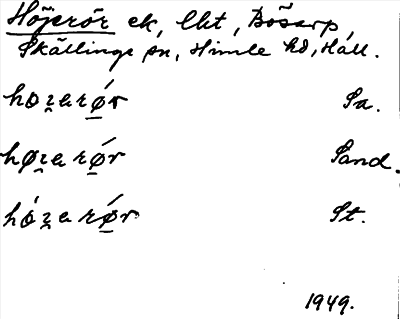 Höjerör ek, lht, Bösarp,
Skällinge sn, Himle hd, Hall.
hozarǿr Sa.
høzarǿr Sand.
hózarǿr St.
1949.